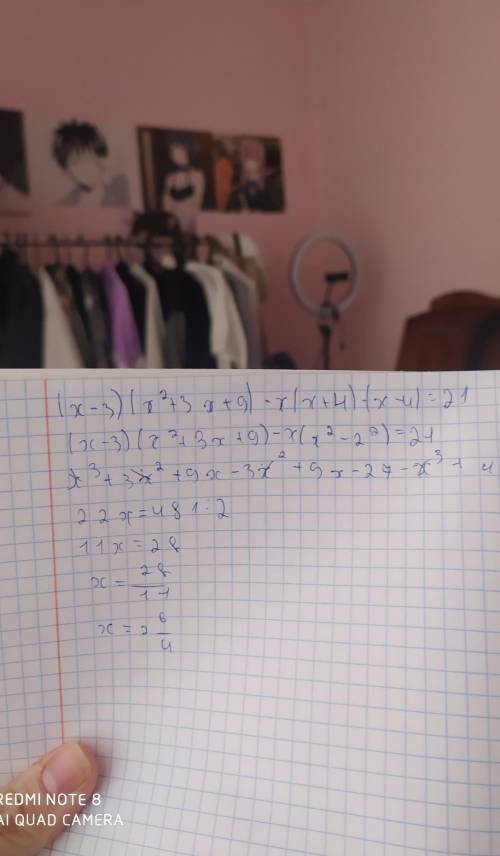 (x-3)(x²+3x+9)-x(x+4)(x-4)=21
(x-3)(x²+3x+9)-x(x²-2²)=21
x³+3x²+9x-3x²+9x-27-x³+4
22x=481:2
11x=28
x=28/11
x=2 6/4
REDMI NOTE 8
AI QUAD CAMERA